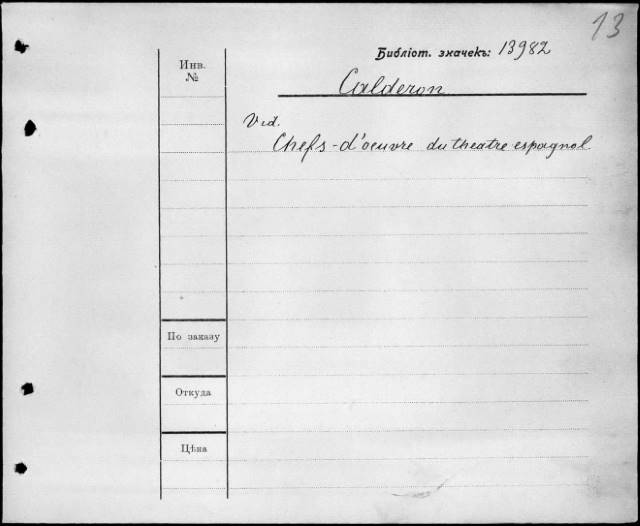 13
Библіот. значекъ: 13982
Инв.
№
Calderon
Vid.
Chefs-d'oeuvre du theatre espagnol
По заказу
Откуда
Цѣна